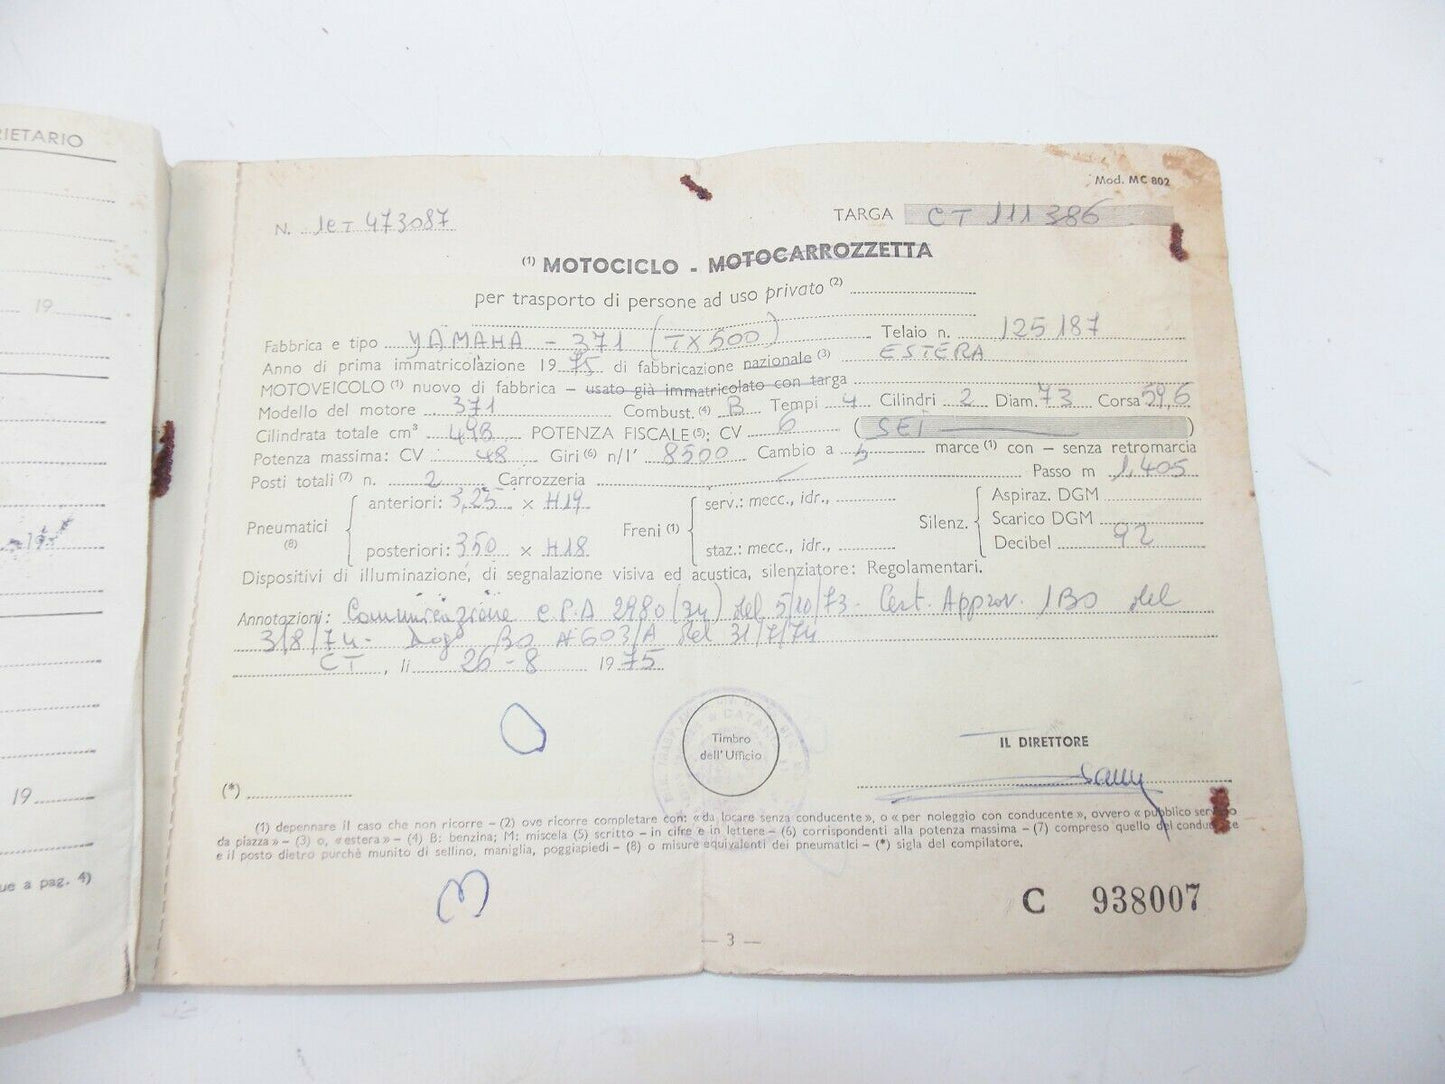 RIETARIO
19
19
ue a pag. 4)
Mod. MC 802
N. 1CT 473087
TARGA CT 111386
(1) MOTOCICLO - MOTOCARROZZETTA
per trasporto di persone ad uso privato (2)
Fabbrica e tipo YAMAHA - 371 (TX500) Telaio n. 125187
Anno di prima immatricolazione 1975 di fabbricazione nazionale (3) ESTERA
MOTOVEICOLO (1) nuovo di fabbrica - usato già immatricolato con targa
Modello del motore 371 Combust. (4) B Tempi 4 Cilindri 2 Diam. 73 Corsa 59,6
Cilindrata totale cm³ 498 POTENZA FISCALE (5): CV 6 (SEI)
Potenza massima: CV 48 Giri (6) n/1' 8500 Cambio a 5 marce (1) con - senza retromarcia
Posti totali (7) n. 2 Carrozzeria Passo m 1,405
Pneumatici (8) anteriori: 3,25 x H19
posteriori: 350 x H18
Freni (1) serv.: mecc., idr.,
staz.: mecc., idr.,
Silenz. Aspiraz. DGM
Scarico DGM
Decibel 92
Dispositivi di illuminazione, di segnalazione visiva ed acustica, silenziatore: Regolamentari.
Annotazioni: Comunicazione C.P.A 2980(74) del 5/10/73 - Cert. Approv. 1BO del
3/8/74 - BO # 603/A del 31/7/74
CT, li 26-8 1975
Timbro
dell'Ufficio
IL DIRETTORE
(*)
(1) depennare il caso che non ricorre - (2) ove ricorre completare con: «da locare senza conducente», o «per noleggio con conducente», ovvero «pubblico servizio
da piazza» - (3) o, «estera» - (4) B: benzina; M: miscela (5) scritto - in cifre e in lettere - (6) corrispondenti alla potenza massima - (7) compreso quello del conducente
e il posto dietro purchè munito di sellino, maniglia, poggiapiedi - (8) o misure equivalenti dei pneumatici - (*) sigla del compilatore.
C 938007
— 3 —